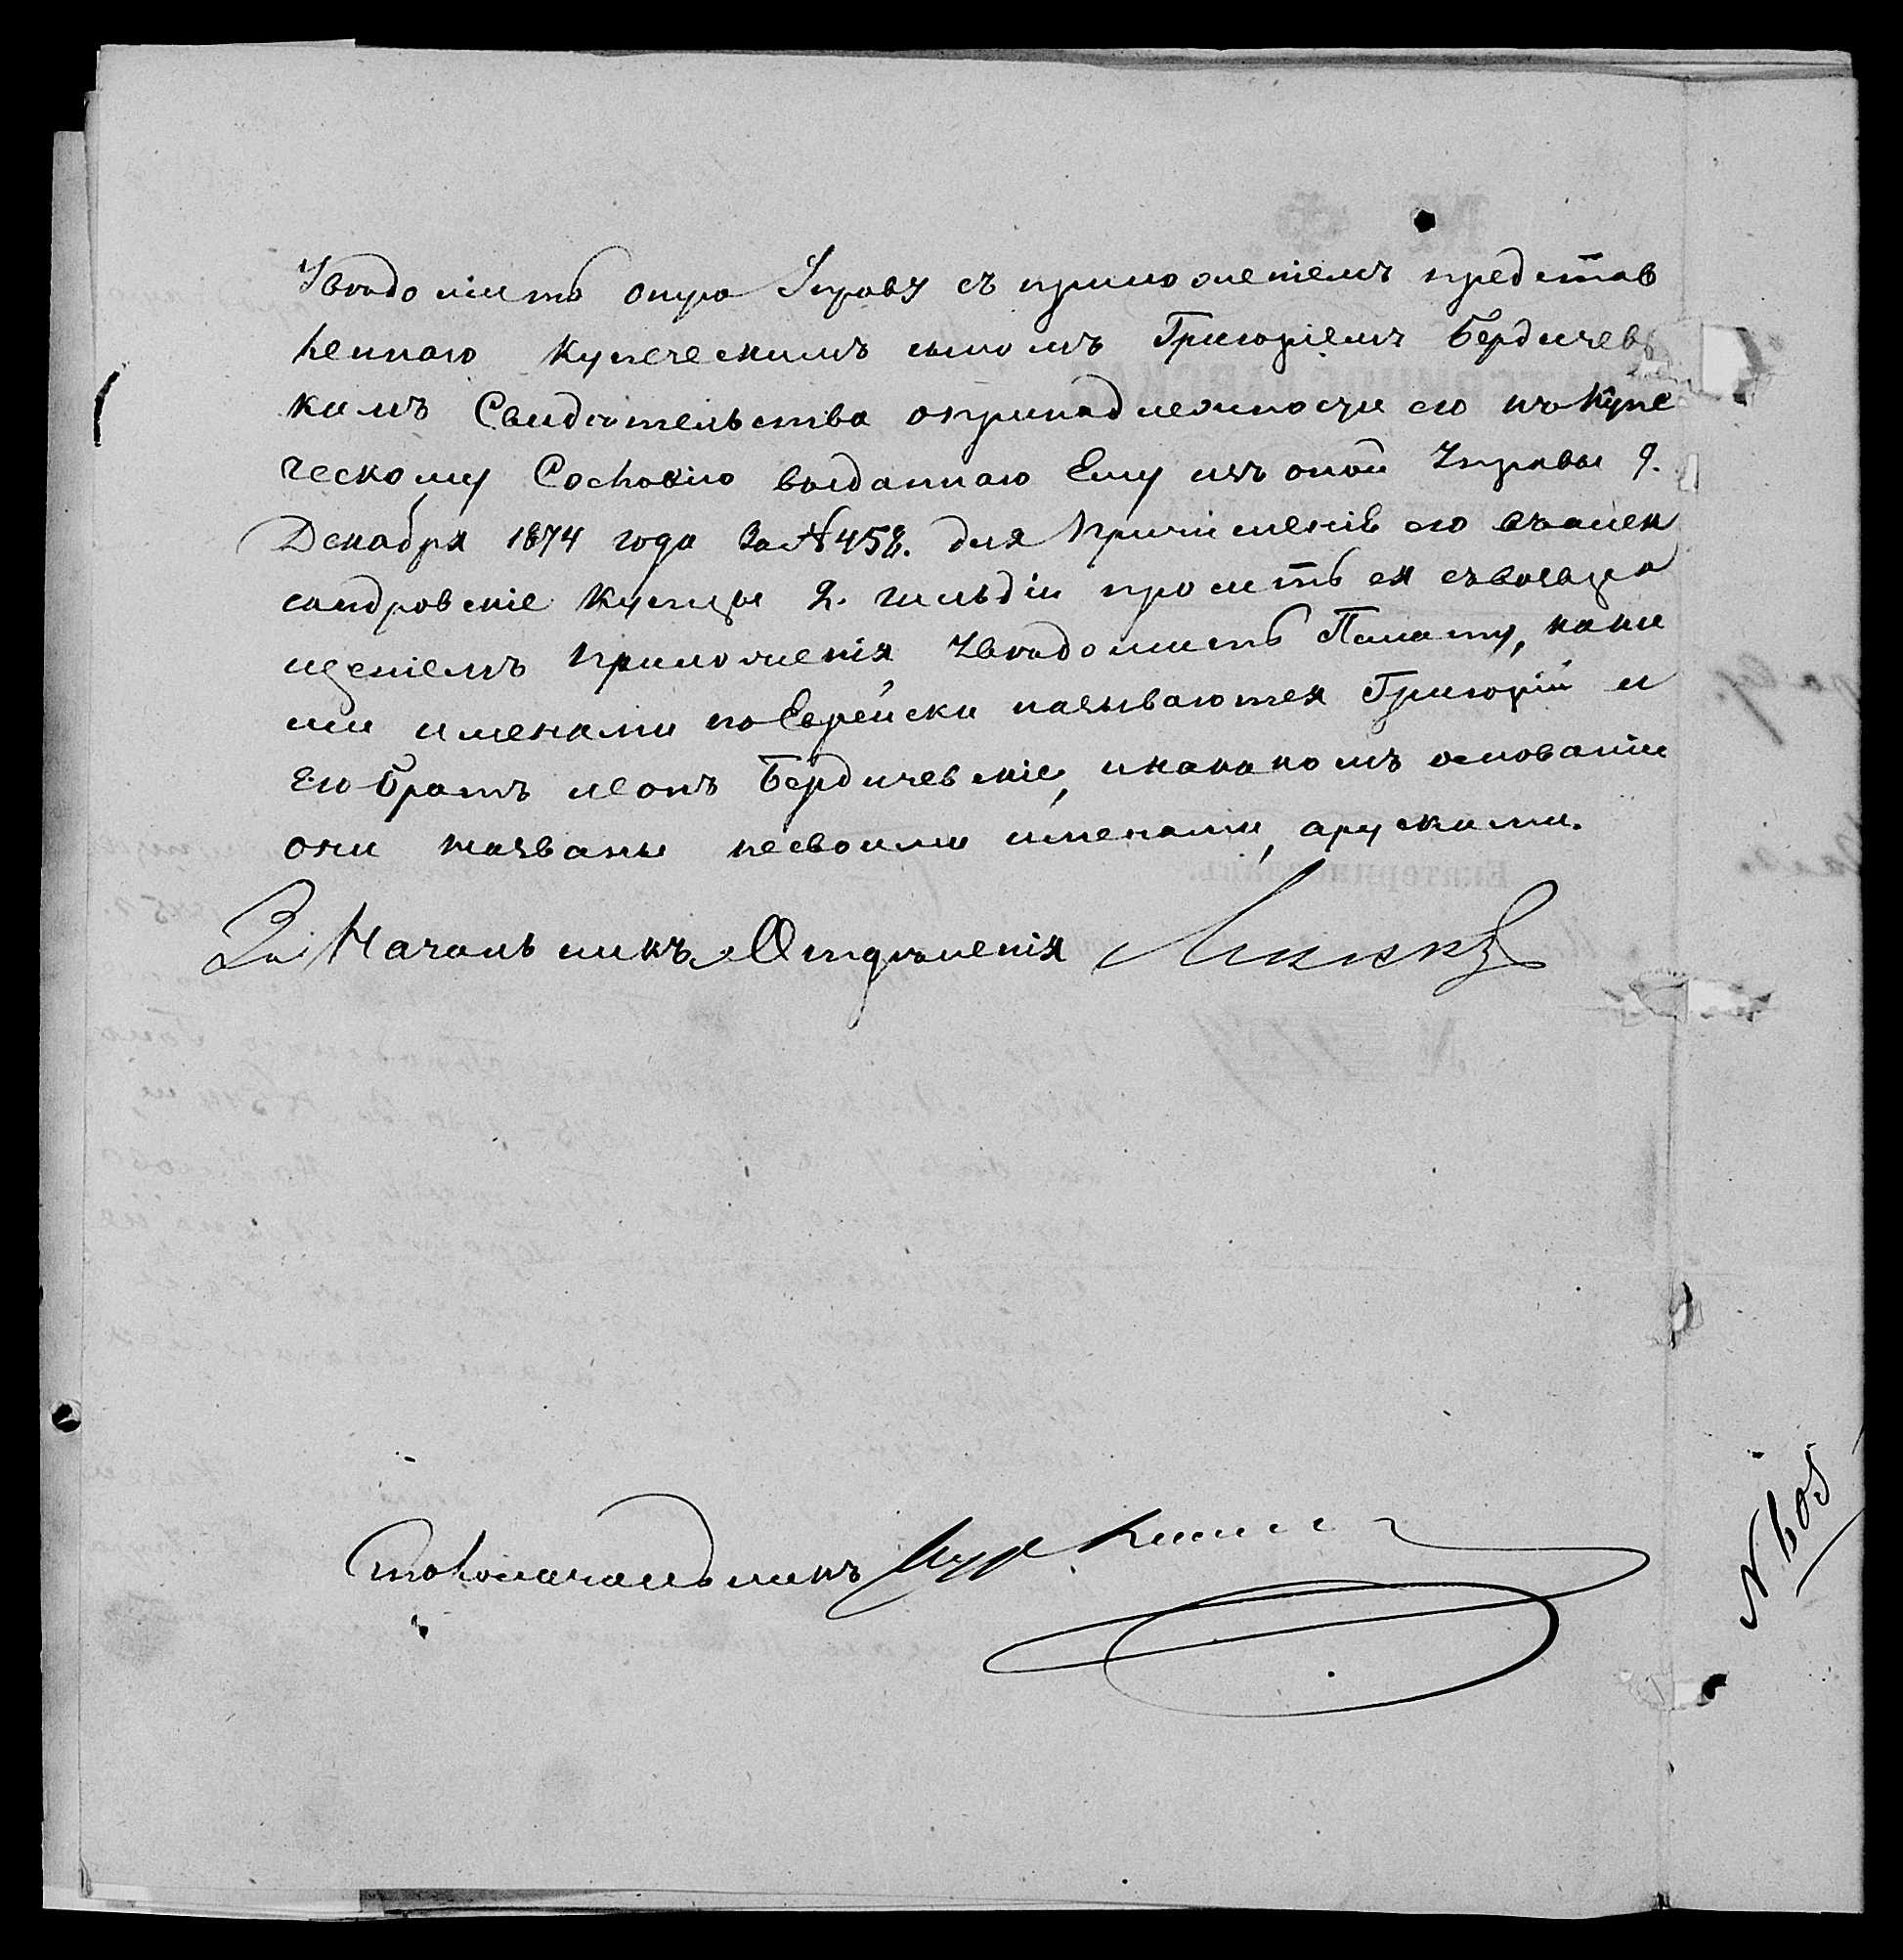 Увѣдомить оную Управу съ приложеніемъ представ
леннаго купеческимъ сыномъ Григоріемъ Бердичевс
кимъ Свидѣтельства о принадлежности его къ купе
ческому Сословію выданнаго Ему изъ оной Управы 9.
Декабря 1874 года за № 458. для причисленія его въ алек
сандровскіе купцы 2. гильдіи проситъ ея съ возвра
щеніемъ приложенія увѣдомить Палату, каки
ми именами по Еврейски называются Григорій и
Его братъ Леонъ Бердичевскіе, и на какомъ основаніи
они названы не своими именами, а рускими.
За Начальникъ Отдѣленія
Столоначальникъ
N 605